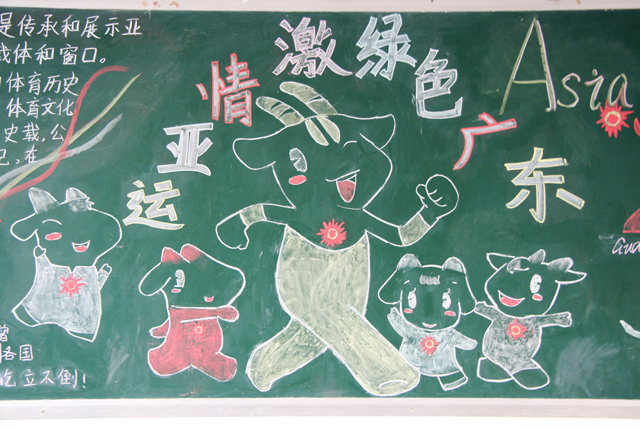 是传承和展示亚
载体和窗口。
体育历史
体育文化
史载,公
在
激情亚运
绿色广东
Asia
各国
屹立不倒!